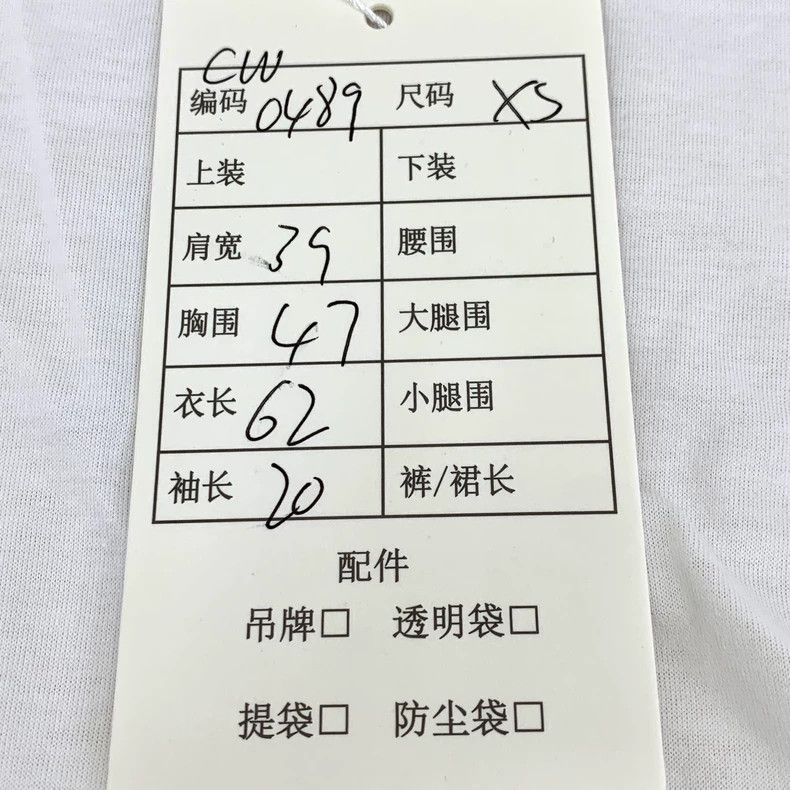 CW
编码 0489 尺码 XS
上装 下装
肩宽 39 腰围
胸围 47 大腿围
衣长 62 小腿围
袖长 20 裤/裙长
配件
吊牌□ 透明袋□
提袋□ 防尘袋□